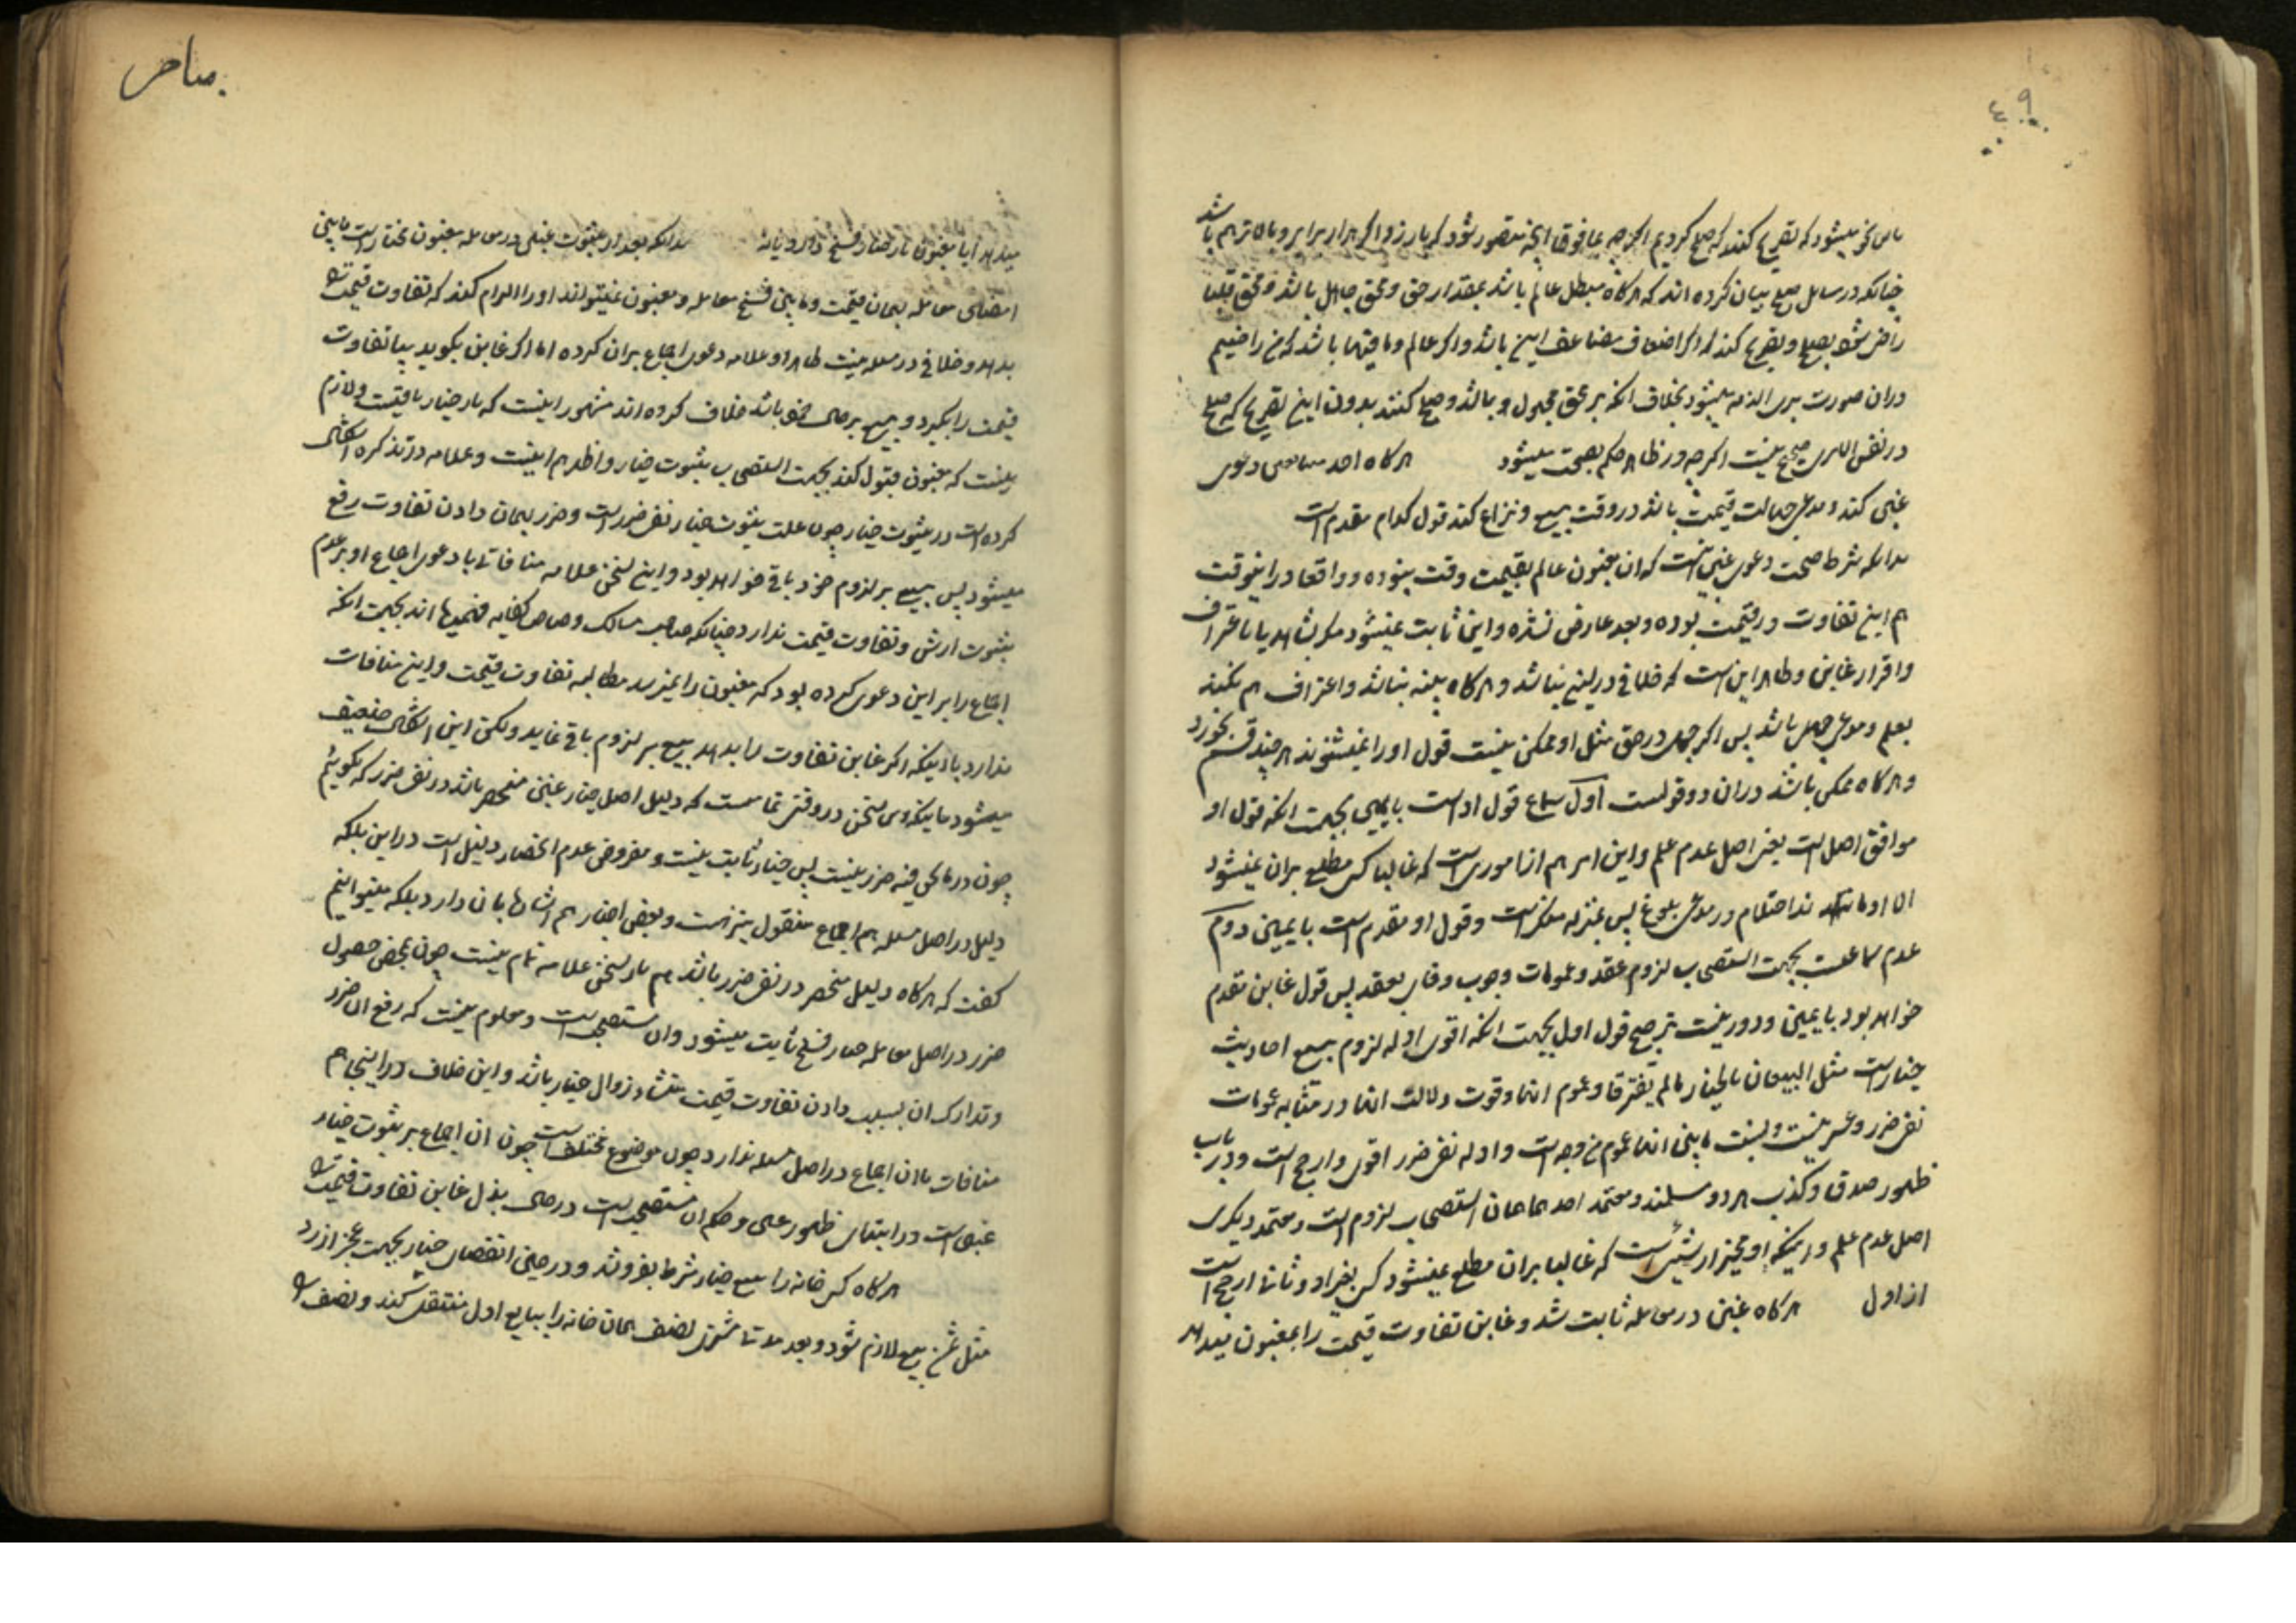 ۴۹
باین نحو میشود که تصریح کنند که صلح کردیم اگرچه بما فوق آنچه متصور شود که بیارزد اگر هزار برابر و بالاتر هم باشد
چنانکه در مسایل صلح بیان کرده اند که هرگاه مبطل عالم باشد بمقدار حق و محق جاهل باشد و محق قلبا
راضی شود بصلح و تصریح کند که اگر اضعاف مضاعف این باشد و اگر عالم و مافیها باشد که من راضیم
در آن صورت بری الذمه میشود بخلاف آنکه بر محق مجهول باشد و صلح کنند بدون این تصریح که صلح
در نفس الامری صحیح نیست اگرچه در ظاهر حکم بصحت میشود هرگاه احد متبایعین دعوی
غبن کند و مدعی جهالت قیمت باشد در وقت بیع و نزاع کنند قول کدام مقدم است
بدانکه شرط صحت دعوی غبن اینست که آن مغبون عالم بقیمت وقت نبوده و واقعا در اینوقت
هم این تفاوت در قیمت بوده و بعد عارض نشده و این ثابت نمیشود مگر بشاهد یا باعتراف
و اقرار غابن و ظاهر این است که خلافی در این نباشد و هرگاه بینه نباشد و اعتراف هم نکند
بعلم و مدعی جهل باشد پس اگر جهل در حق مثل او ممکن نیست قول او را نمیشنوند هر چند قسم بخورد
و هرگاه ممکن باشد در آن دو قولست اول سماع قول او است با یمین بجهت آنکه قول او
موافق اصل است یعنی اصل عدم علم و این امر هم از اموری است که غالبا کسی مطلع بر آن نمیشود
الا او مانند احتلام در مدعی بلوغ پس بمنزله منکر است و قول او مقدم است با یمین دوم
عدم سماعست بجهت استصحاب لزوم عقد و عمومات وجوب وفای بعقد پس قول غابن مقدم
خواهد بود با یمین و دور نیست ترجیح قول اول بجهت آنکه اقوی ادله لزوم بیع احادیث
خیار است مثل البیعان بالخیار مالم یفترقا و عموم آنها و قوت دلالت آنها در مثابه عمومات
نفی ضرر و عسر نیست و نسبت مابین آنها عموم من وجه است و ادله نفی ضرر اقوی و ارجح است و در باب
ظهور صدق و کذب هر دو مسلمند و معتمد احدهما همان استصحاب لزوم است و معتمد دیگری
اصل عدم علم و اینکه او مخبر از شیئی است که غالبا بر آن مطلع نمیشود کسی بغیر او و ثانی ارجح است
از اول هرگاه غبن در معامله ثابت شد و غابن تفاوت قیمت را بمغبون میدهد
میدهد آیا مغبون باز خیار فسخ دارد یا نه بدانکه بعد از ثبوت غبن در معامله مغبون مختار است مابین
امضای معامله بهمان قیمت و مابین فسخ معامله و مغبون نمیتواند او را الزام کند که تفاوت قیمت
بدهد و خلافی در مسئله نیست ظاهرا و علامه دعوی اجماع بر آن کرده اما اگر غابن بگوید بیا تفاوت
قیمت را بگیر و بیع بر حال خود باشد خلاف کرده اند مشهور اینست که باز خیار باقیست و لازم
نیست که مغبون قبول کند بجهت استصحاب ثبوت خیار و اظهر هم اینست و علامه در تذکره اشکال
کرده است در ثبوت خیار چون علت ثبوت خیار نفی ضرر است و ضرر بهمان دادن تفاوت رفع
میشود پس بیع بر لزوم خود باقی خواهد بود و این سخن علامه منافاتی با دعوی اجماع او بر عدم
ثبوت ارش و تفاوت قیمت ندارد چنانکه صاحب مسالک و صاحب کفایه فهمیده اند بجهت آنکه
اجماع را بر این دعوی کرده بود که مغبون را نمیرسد مطالبه تفاوت قیمت و این منافات
ندارد با اینکه اگر غابن تفاوت را بدهد بیع بر لزوم باقی نماید و لکن این اشکال ضعیف
میشود باینکه این سخن در وقتی تمامست که دلیل اصل خیار غبن منحصر باشد در نفی ضرر که بگوئیم
چون در مانحن فیه ضرر نیست پس خیار ثابت نیست و مفروض عدم انحصار دلیل است در این بلکه
دلیل در اصل مسئله هم اجماع منقول نیز هست و بعضی اخبار هم اشارها بآن دارد بلکه میتوانیم
گفت که هرگاه دلیل منحصر در نفی ضرر باشد هم باز سخن علامه تمام نیست چون بمحض حصول
ضرر در اصل معامله خیار فسخ ثابت میشود و آن مستصحب است و معلوم نیست که رفع آن ضرر
و تدارک آن بسبب دادن تفاوت قیمت منشاء زوال خیار باشد و این خلاف در اینجا هم
منافات با آن اجماع در اصل مسئله ندارد چون موضوع مختلف است چون آن اجماع بر ثبوت خیار
غبن است در ابتدای ظهور غبن و حکم آن مستصحب است در حال بذل غابن تفاوت قیمت
هرگاه کسی خانه را بیع خیار شرط بفروشد و در حین انقضای خیار بجهت عجز از رد
مثل ثمن بیع لازم شود و بعد مدتها مشتری نصف همان خانه را ببایع اول منتقل کند و نصف